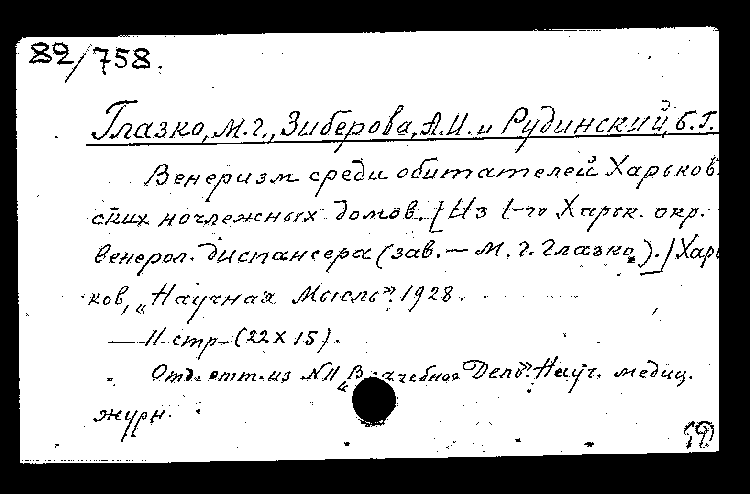 82/758.
Глазко, М. Г., Зиберова, А. И. и Рудинский, Б. Г.
Венеризм среди обитателей Харьков
ских ночлежных домов. [Из 1-го Харьк. окр.
венерол. диспансера (зав. — М. Г. Глазко).] Харь
ков, „Научная Мысль”. 1928.
— 11 стр. (22 x 15).
Отд. отт. из №11 „Врачебное Дело”. Науч. медиц.
журн.